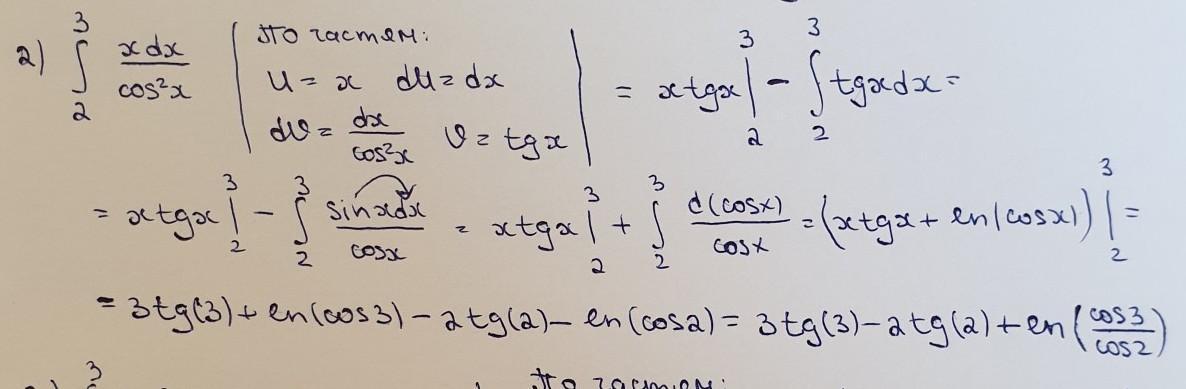 2) ∫₂³ xdx/cos²x | По частям: u = x du = dx dv = dx/cos²x v = tgx | = xtgx|₂³ - ∫₂³ tgxdx =
= xtgx|₂³ - ∫₂³ sinxdx/cosx = xtgx|₂³ + ∫₂³ d(cosx)/cosx = (xtgx + ln|cosx|)|₂³ =
= 3tg(3) + ln(cos3) - 2tg(2) - ln(cos2) = 3tg(3) - 2tg(2) + ln(cos3/cos2)
3
По частям: